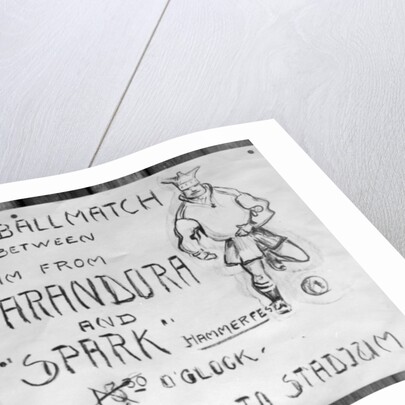 BALLMATCH
BETWEEN
FROM
ARANDORA
AND
"SPARK" HAMMERFEST
O'CLOCK.
TO STADIUM